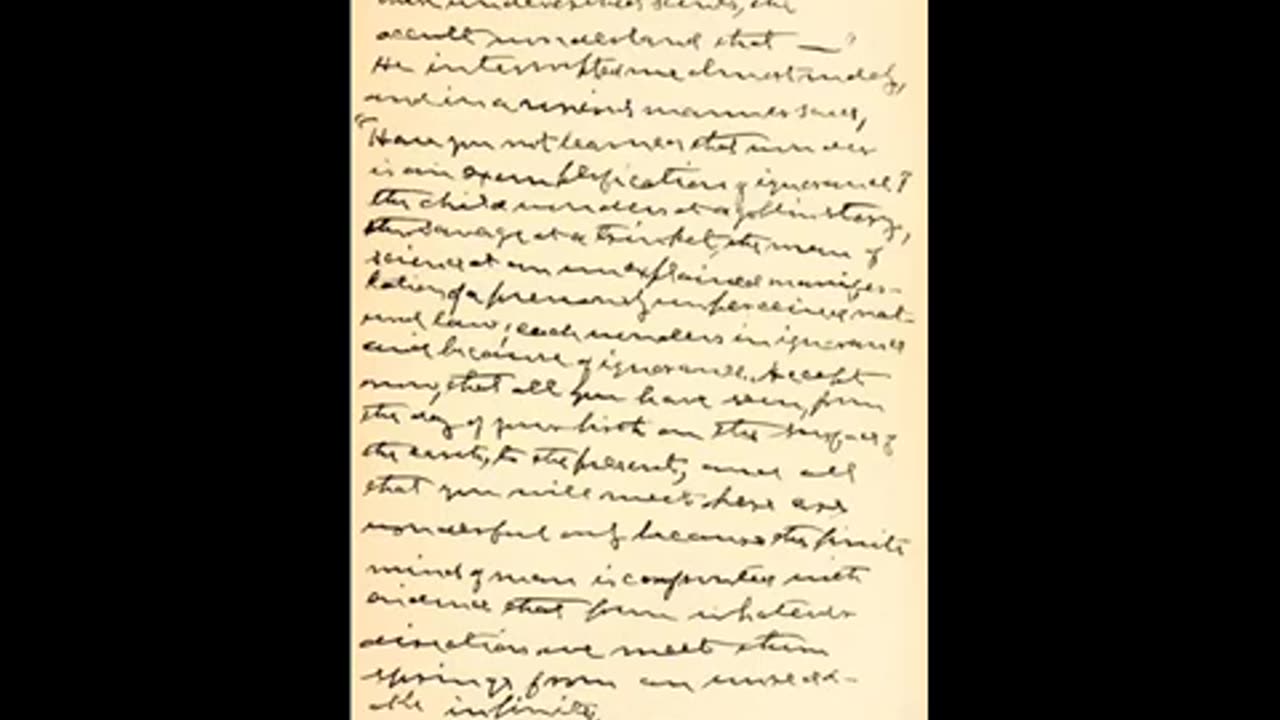 the
occult wonderland that —"
He interrupted me almost rudely,
and in a serious manner said,
"Have you not learned that wonder
is an exemplification of ignorance?
the child wonders at a goblin story,
the savage at a trinket, the man of
science at an unexplained manifes-
tation of a previously unperceived nat-
ural law; each wonders in ignorance
and because of ignorance. Accept
now, that all you have seen, from
the day of your birth on the surface of
the earth, to the present, and all
that you will meet here are
wonderful only because the finite
mind of man is confronted with
evidence that from whatever
direction we meet them
springs from an unreach-
able infinity